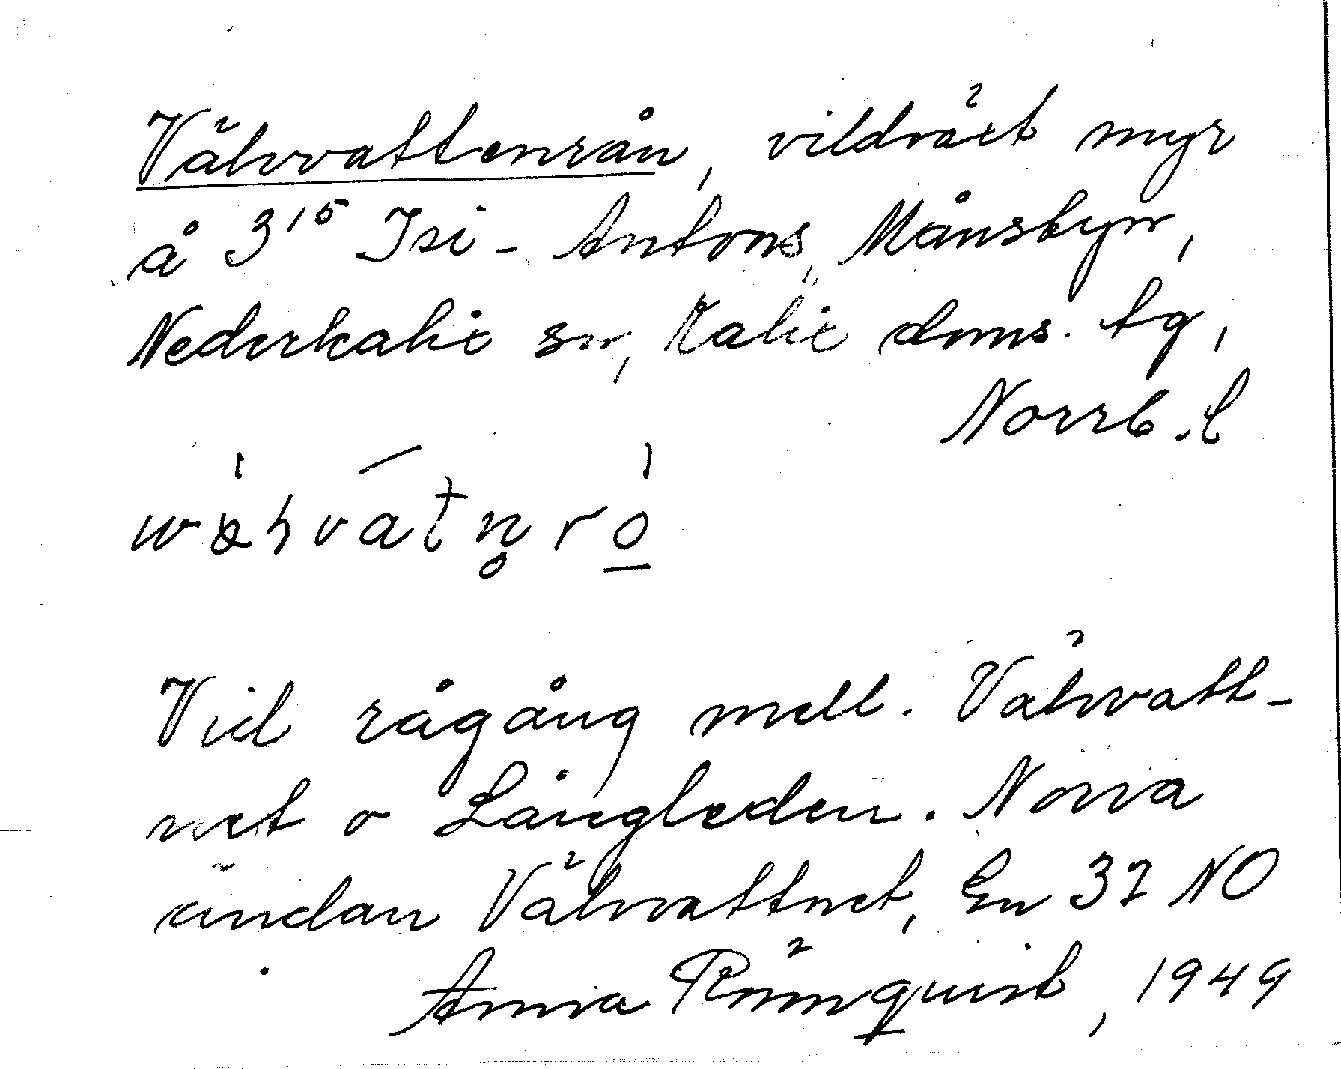 Välvvattenrån, vildväxt myr
å 3¹⁵ Isi - Antons, Månsbyn,
Nederkalix sn, Kalix doms. tg,
Norrb. l
Vid rågång mell. Välvvatt-
net o Långleden. Norra
ändan Välvvattnet, En 32 NO
Anna Rönnquist, 1949